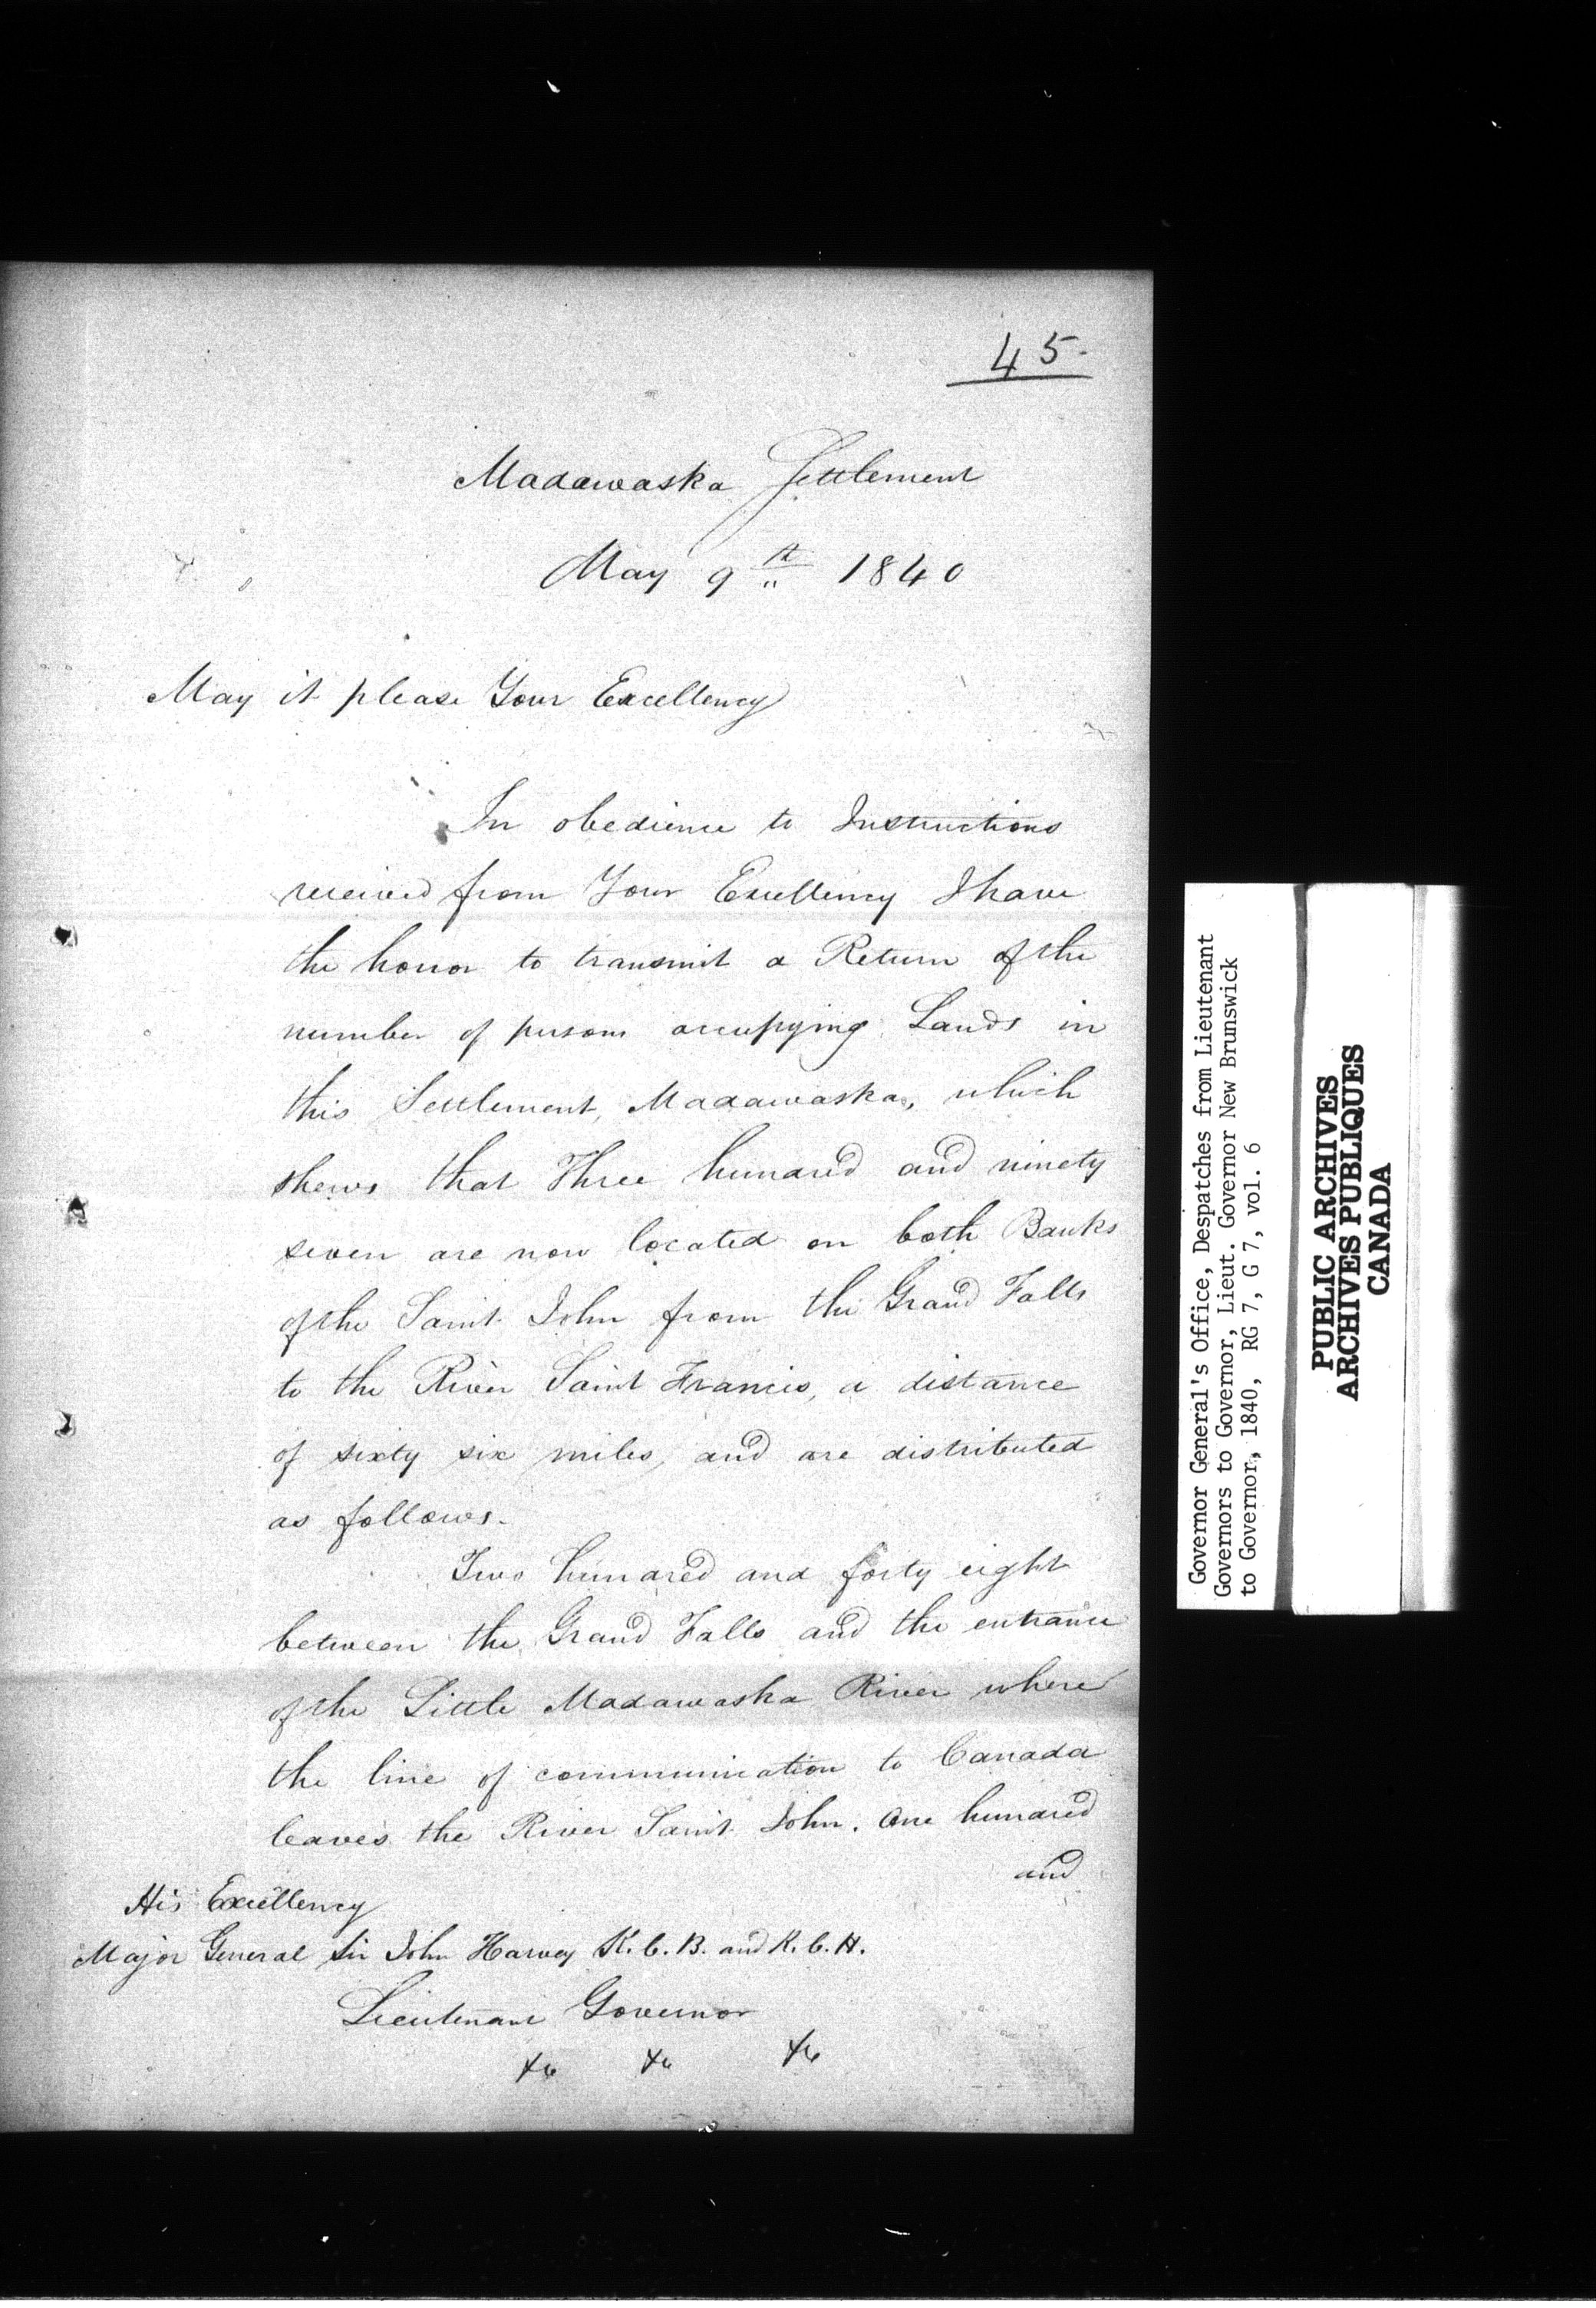 45.
Madawaska Settlement
May 9th 1840
May it please Your Excellency
In obedience to Instructions
received from Your Excellency I have
the honor to transmit a Return of the
number of persons occupying Lands in
this Settlement, Madawaska, which
shews that Three hundred and ninety
seven are now located on both Banks
of the Saint John from the Grand Falls
to the River Saint Francis, a distance
of sixty six miles, and are distributed
as follows.
Two hundred and forty eight
between the Grand Falls and the entrance
of the Little Madawaska River where
the line of communication to Canada
leaves the River Saint John. One hundred
and
His Excellency
Major General Sir John Harvey K.C.B. and K.C.H.
Lieutenant Governor
&c &c &c
Governor General's Office, Despatches from Lieutenant
Governors to Governor, Lieut. Governor New Brunswick
to Governor, 1840, RG 7, G 7, vol. 6
PUBLIC ARCHIVES
ARCHIVES PUBLIQUES
CANADA